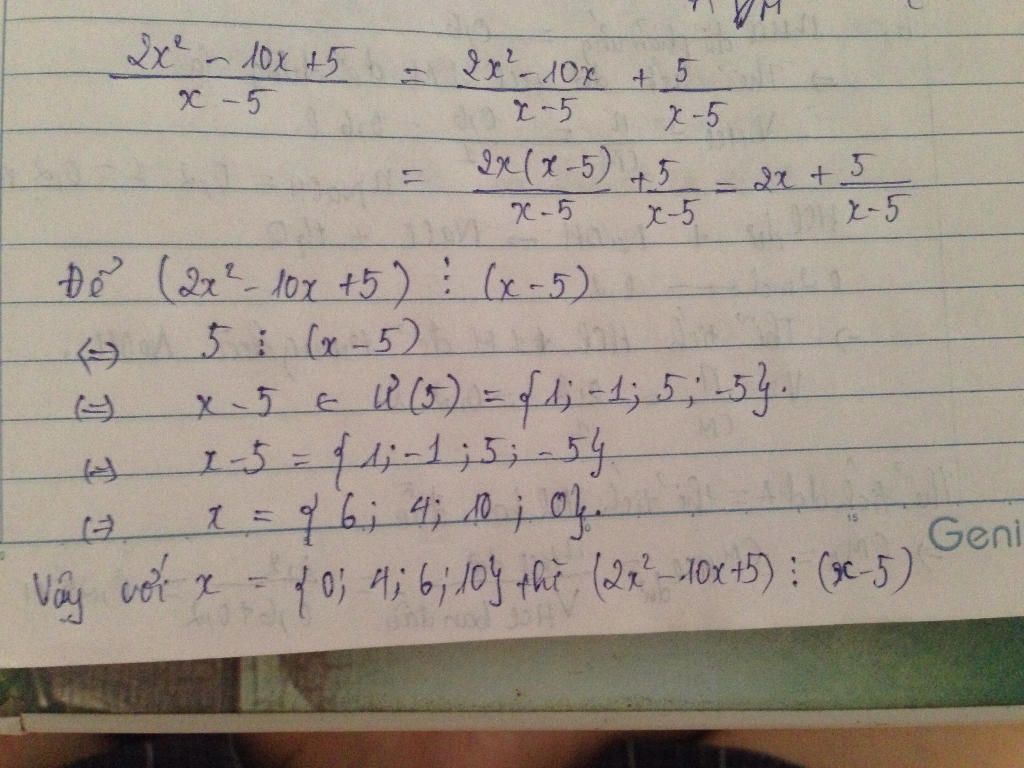 2x² - 10x + 5 / x - 5 = 2x² - 10x / x - 5 + 5 / x - 5
= 2x(x - 5) / x - 5 + 5 / x - 5 = 2x + 5 / x - 5
Để (2x² - 10x + 5) ⋮ (x - 5)
⇔ 5 ⋮ (x - 5)
⇔ x - 5 ∈ Ư(5) = {1; -1; 5; -5}.
⇔ x - 5 = {1; -1; 5; -5}
⇔ x = {6; 4; 10; 0}.
Geni
Vậy với x = {0; 4; 6; 10} thì (2x² - 10x + 5) ⋮ (x - 5)